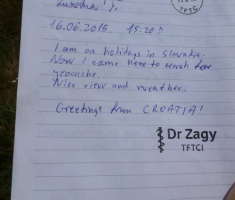 16.06.2015 15:20h
I am on holidays in Slovakia.
Now I came here to search for
geocache.
Nice view and weather.
Greetings from CROATIA!
Dr Zagy
TFTC!
TFTC